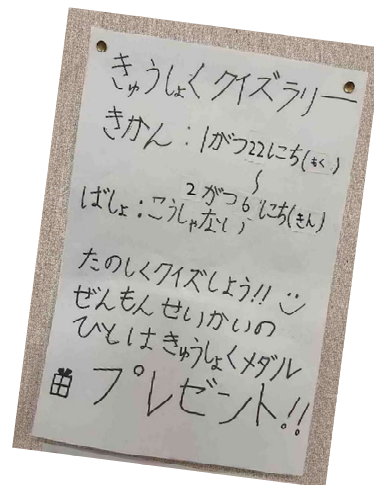 きゅうしょくクイズラリー
きかん:1がつ22にち(もく)
〜
2がつ6にち(きん)
ばしょ:こうしゃない
たのしくクイズしよう!!
ぜんもんせいかいの
ひとはきゅうしょくメダル
プレゼント!!